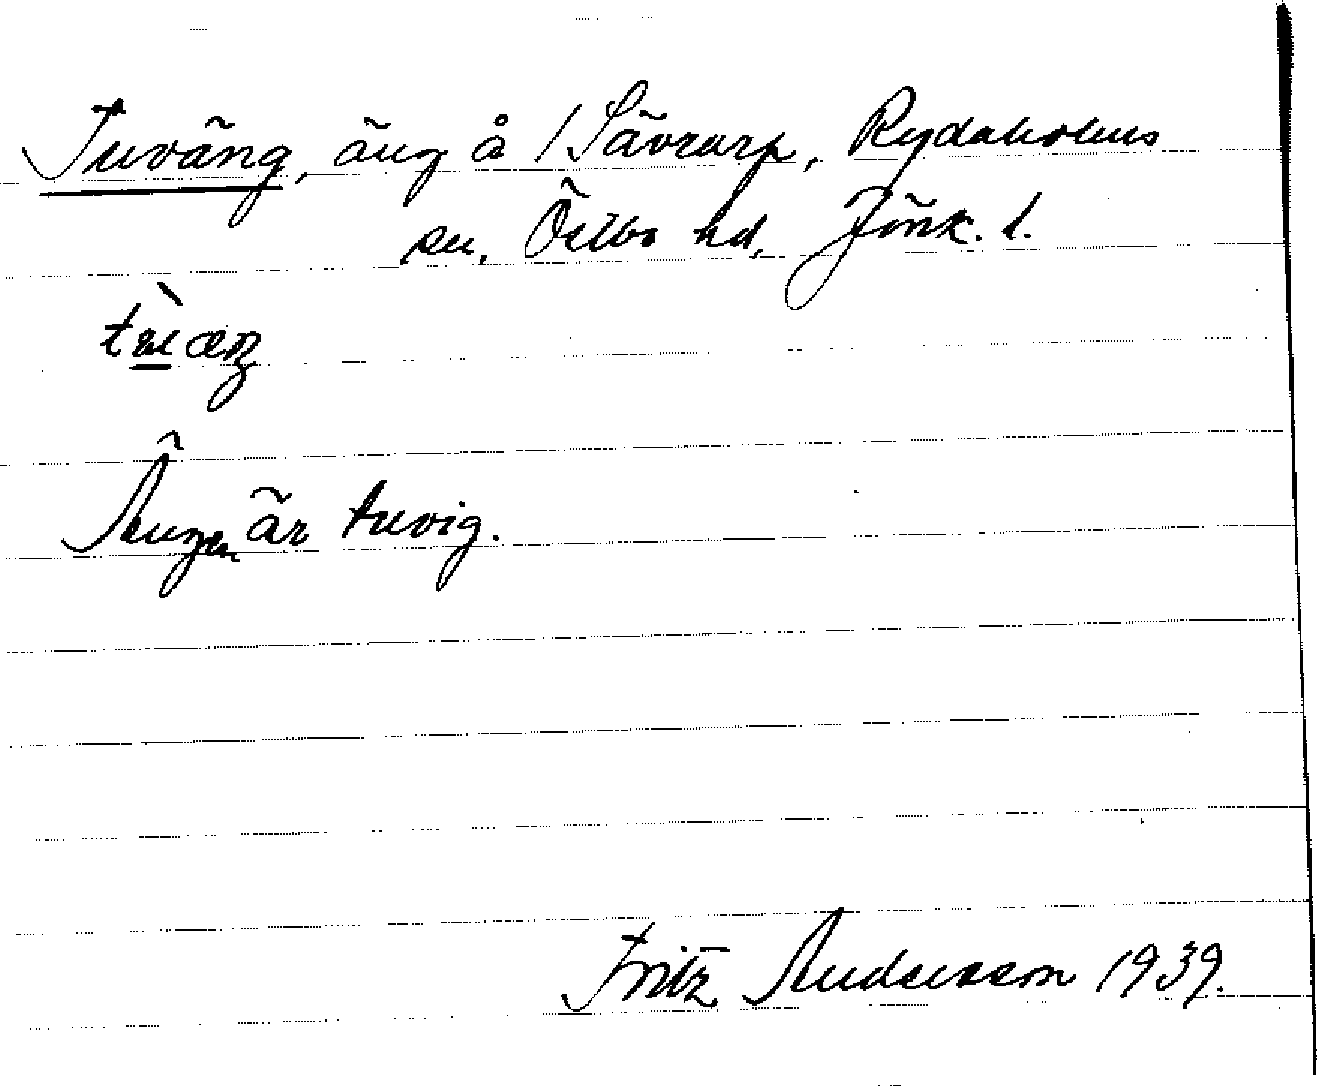 Tuväng, äng å Sävrarp, Rydaholms
sn, Östbo hd, Jönk. l.
Ängen är tuvig.
Fritz Andersson 1939.